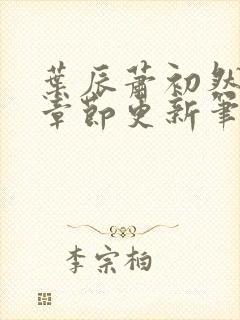 葉辰蕭初然
章節更新筆
李宗柏